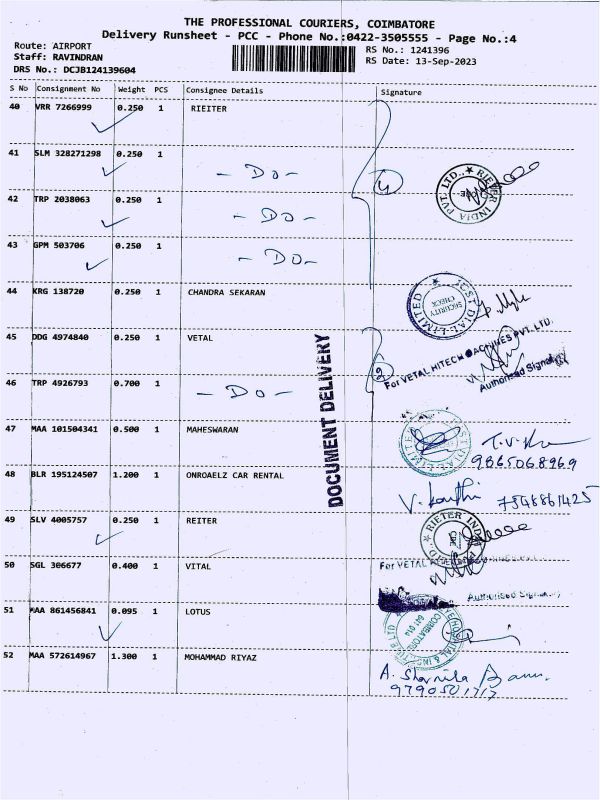 THE PROFESSIONAL COURIERS, COIMBATORE
Delivery Runsheet - PCC - Phone No.:0422-3505555 - Page No.:4
Route: AIRPORT
RS No.: 1241396
Staff: RAVINDRAN
RS Date: 13-Sep-2023
DRS No.: DCJB124139604
S No Consignment No Weight PCS Consignee Details Signature
40 VRR 7266999 0.250 1 RIEITER
41 SLM 328271298 0.250 1 - Do -
42 TRP 2038063 0.250 1 - Do -
43 GPM 503706 0.250 1 - Do -
4
RIETER INDIA PVT. LTD.
44 KRG 138720 0.250 1 CHANDRA SEKARAN
JUST DIAL LIMITED
SECURITY CHECK
45 DDG 4974840 0.250 1 VETAL
2
For VETAL HITECH MACHINES PVT. LTD.
Authorised Signatory
46 TRP 4926793 0.700 1 - Do -
DOCUMENT DELIVERY
47 MAA 101504341 0.500 1 MAHESWARAN
9865068969
48 BLR 195124507 1.200 1 ONROAELZ CAR RENTAL
49 SLV 4005757 0.250 1 REITER
RIETER INDIA
50 SGL 306677 0.400 1 VITAL
For VETAL
Authorised Signatory
51 MAA 861456841 0.095 1 LOTUS
COIMBATORE
641 014
52 MAA 572614967 1.300 1 MOHAMMAD RIYAZ
A. Sharmila Banu.